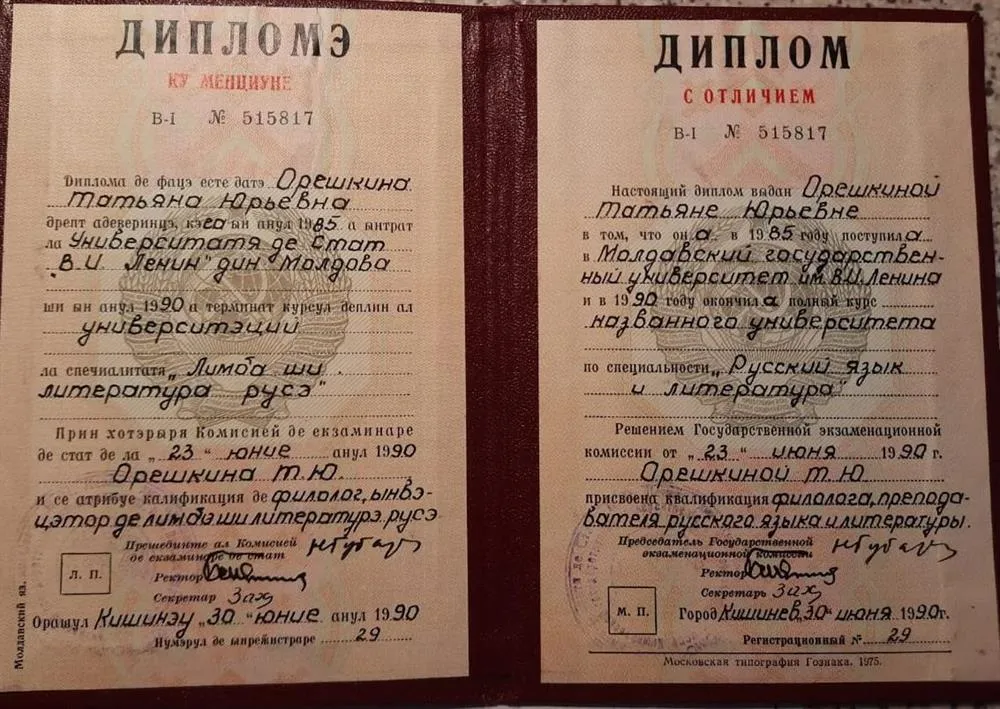 ДИПЛОМЭ
КУ МЕНЦИУНЕ
В-I № 515817
Диплома де фацэ есте датэ Орешкина
Татьяна Юрьевна
дрепт адеверинцэ, кэ еа ын анул 1985 а ынтрат
ла Университатя де Стат
„В.И. Ленин" дин Молдова
ши ын анул 1990 а терминат курсул деплин ал
университэций
ла спечиалитатя „Лимба ши
литература русэ"
Прин хотэрыря Комисией де екзаминаре
де стат де ла „23" юние анул 1990
Орешкина Т.Ю.
и се атрибуе калификация де филолог, ынвэ-
цэтор де лимбэ ши литературэ русэ
Прешединте ал Комисией
де екзаминаре де стат
Ректор
Секретар
Л. П.
Орашул Кишинэу „30" юние анул 1990
Нумэрул де ынрежистраре 29
Молдавский яз.
ДИПЛОМ
С ОТЛИЧИЕМ
В-I № 515817
Настоящий диплом выдан Орешкиной
Татьяне Юрьевне
в том, что она в 1985 году поступила
в Молдавский государствен-
ный университет им. В.И. Ленина
и в 1990 году окончила полный курс
названного университета
по специальности „Русский язык
и литература"
Решением Государственной экзаменационной
комиссии от „23" июня 1990 г.
Орешкиной Т.Ю.
присвоена квалификация филолога, препода-
вателя русского языка и литературы.
Председатель Государственной
экзаменационной комиссии
Ректор
Секретарь
М. П.
Город Кишинев, 30" июня 1990г.
Регистрационный № 29
Московская типография Гознака. 1975.